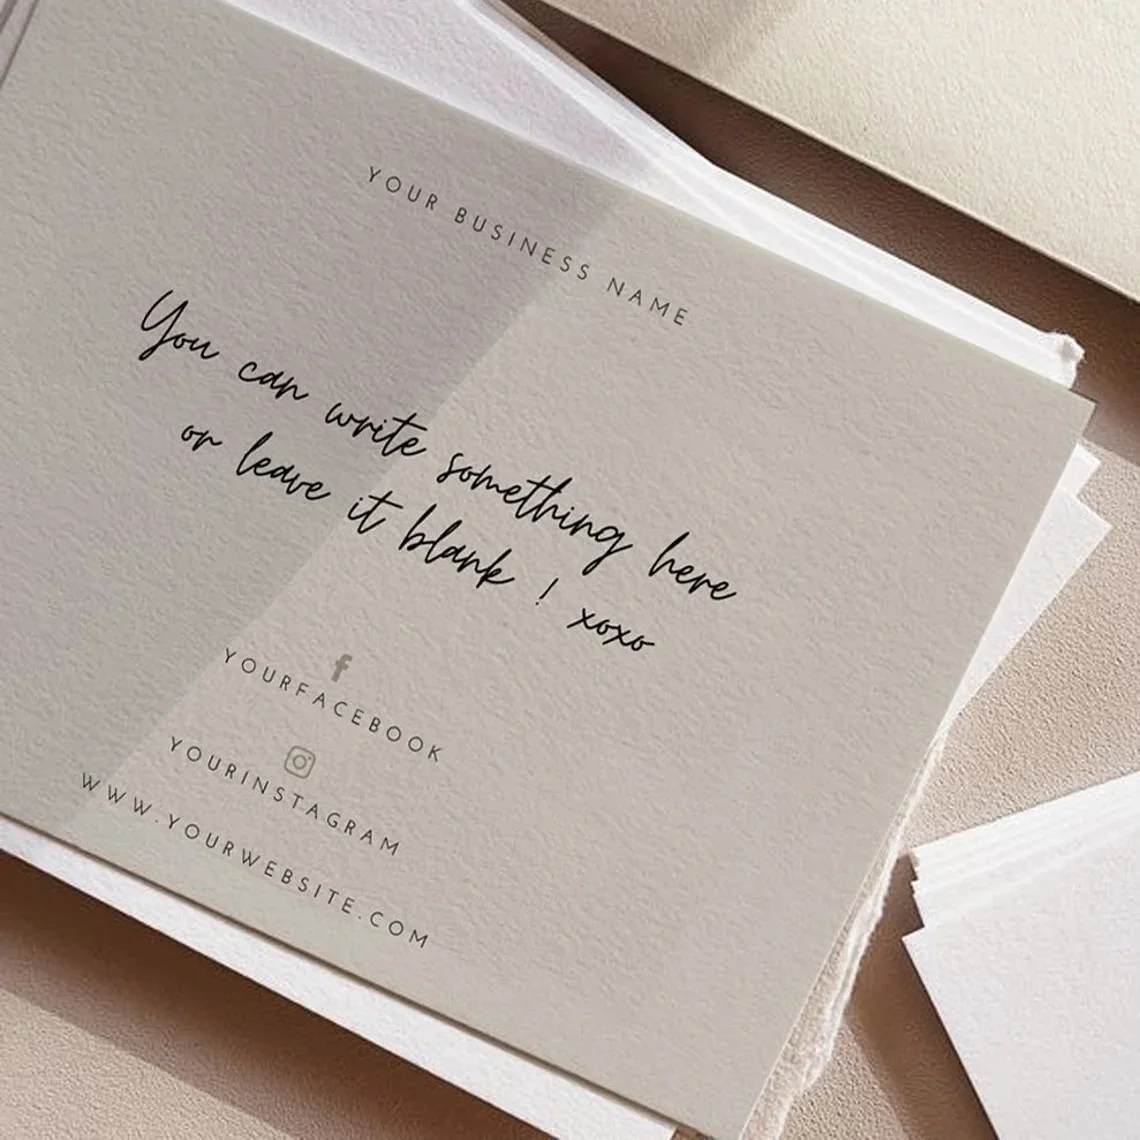 YOUR BUSINESS NAME
You can write something here
or leave it blank ! xoxo
YOURFACEBOOK
YOURINSTAGRAM
WWW.YOURWEBSITE.COM